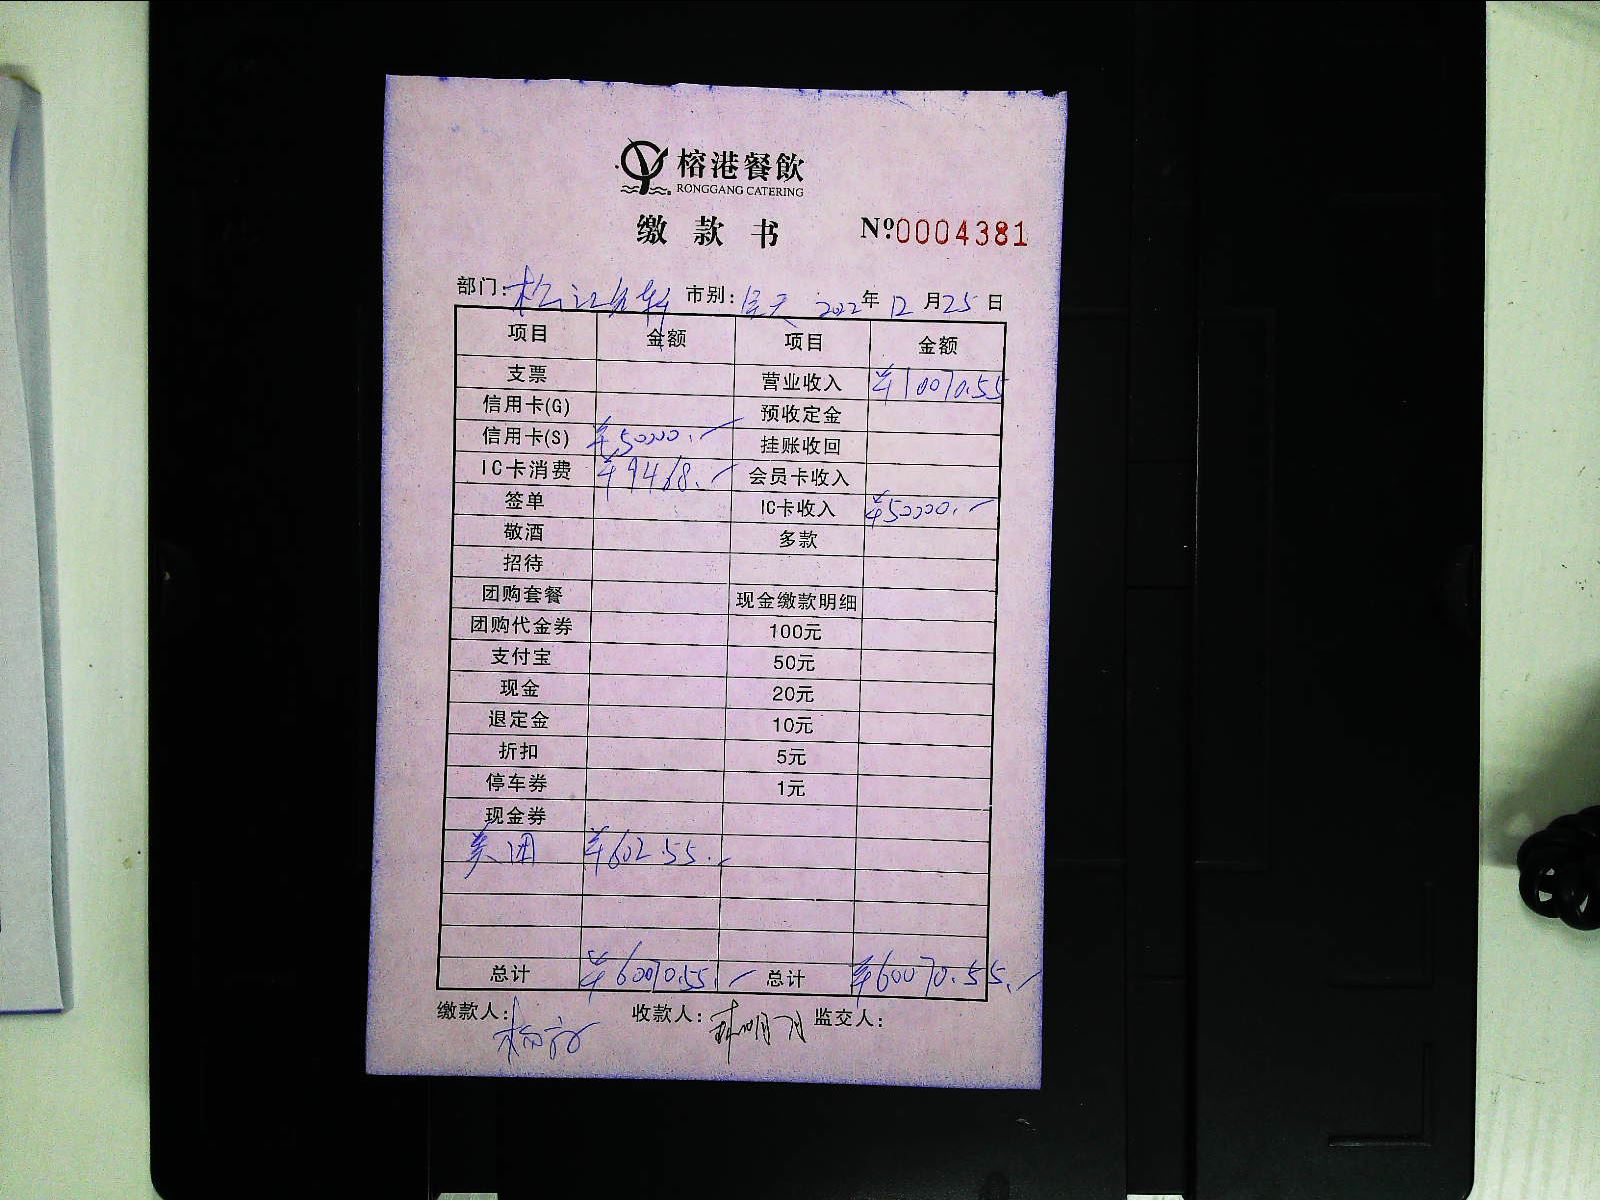 榕港餐飲
RONGGANG CATERING
缴款书 Nº0004381
部门: 市别: 全天 2022年 12月25日
项目 金额 项目 金额
支票 营业收入 ¥10070.55
信用卡(G) 预收定金
信用卡(S) ¥50000.- 挂账收回
IC卡消费 ¥9468.- 会员卡收入
签单 IC卡收入 ¥50000.-
敬酒 多款
招待
团购套餐 现金缴款明细
团购代金券 100元
支付宝 50元
现金 20元
退定金 10元
折扣 5元
停车券 1元
现金券
美团 ¥602.55.-
总计 ¥60070.55.- 总计 ¥60070.55.-
缴款人: 收款人: 林明月 监交人: